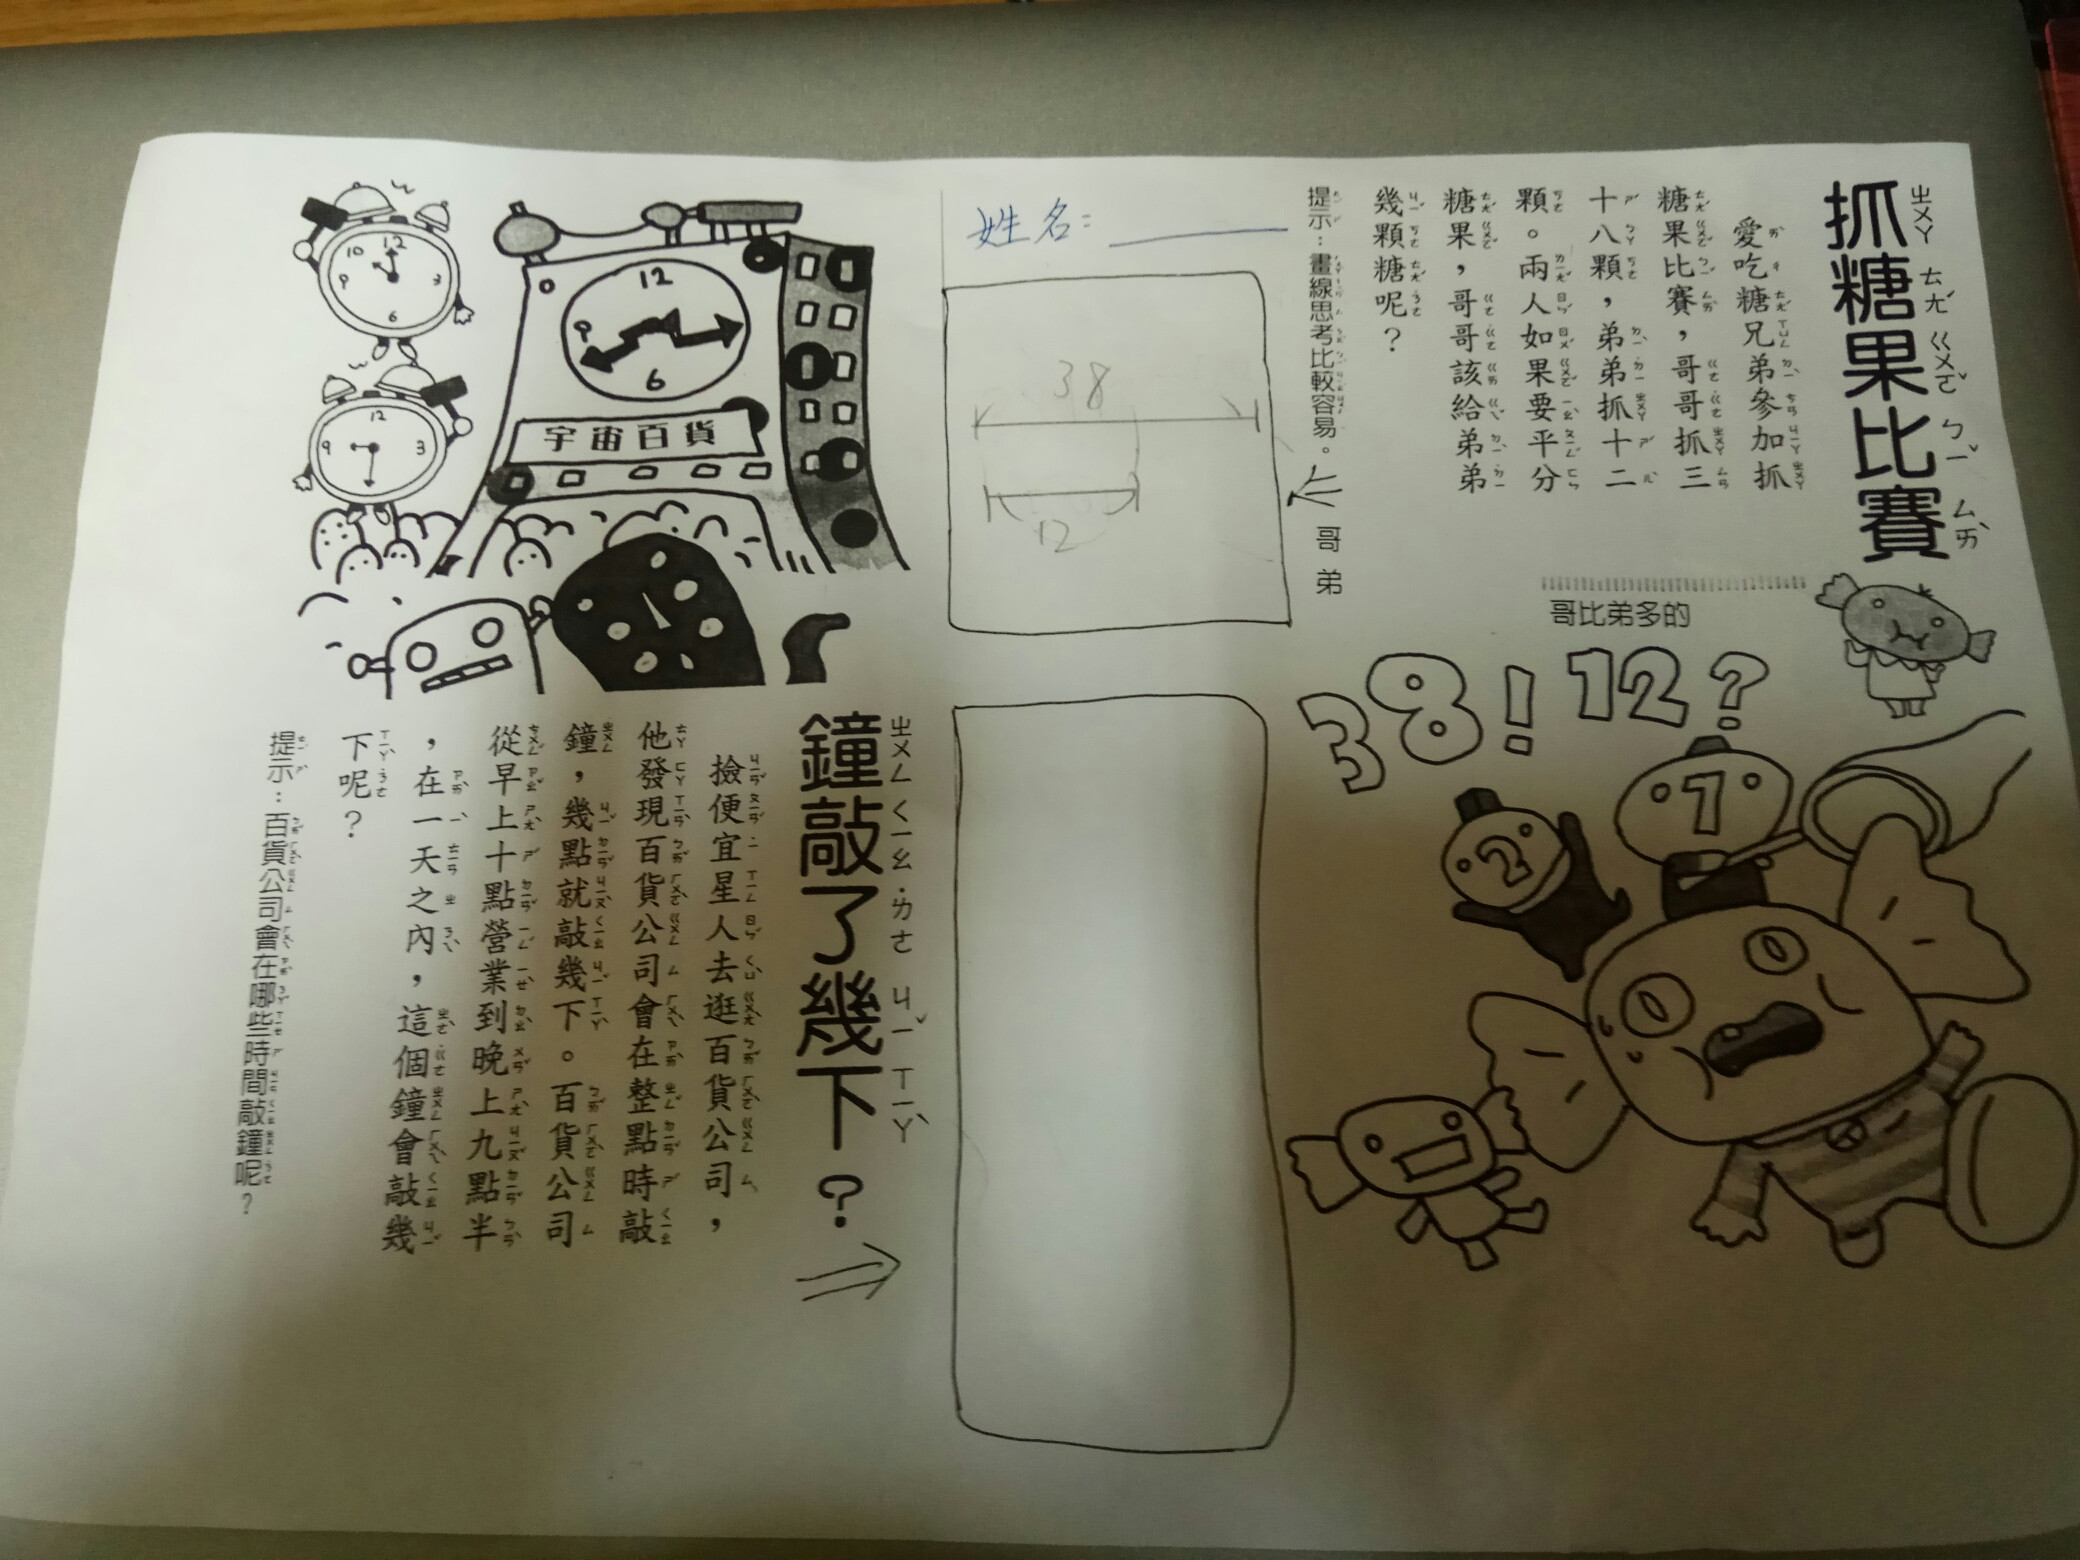 抓糖果比賽
ㄓㄨㄚ ㄊㄤˊ ㄍㄨㄛˇ ㄅㄧˇ ㄙㄞˋ
愛吃糖兄弟參加抓
糖果比賽，哥哥抓三
十八顆，弟弟抓十二
顆。兩人如果要平分
糖果，哥哥該給弟弟
幾顆糖呢？
提示：畫線思考比較容易。
哥
弟
哥比弟多的
38！12？
1
2
姓名：
38
12
12
10
9
3
6
12
9
3
12
9
6
宇宙百貨
鐘敲了幾下？
ㄓㄨㄥ ㄑㄧㄠ ˙ㄌㄜ ㄐㄧˇ ㄒㄧㄚˋ
撿便宜星人去逛百貨公司，
他發現百貨公司會在整點時敲
鐘，幾點就敲幾下。百貨公司
從早上十點營業到晚上九點半
，在一天之內，這個鐘會敲幾
下呢？
提示：百貨公司會在哪些時間敲鐘呢？